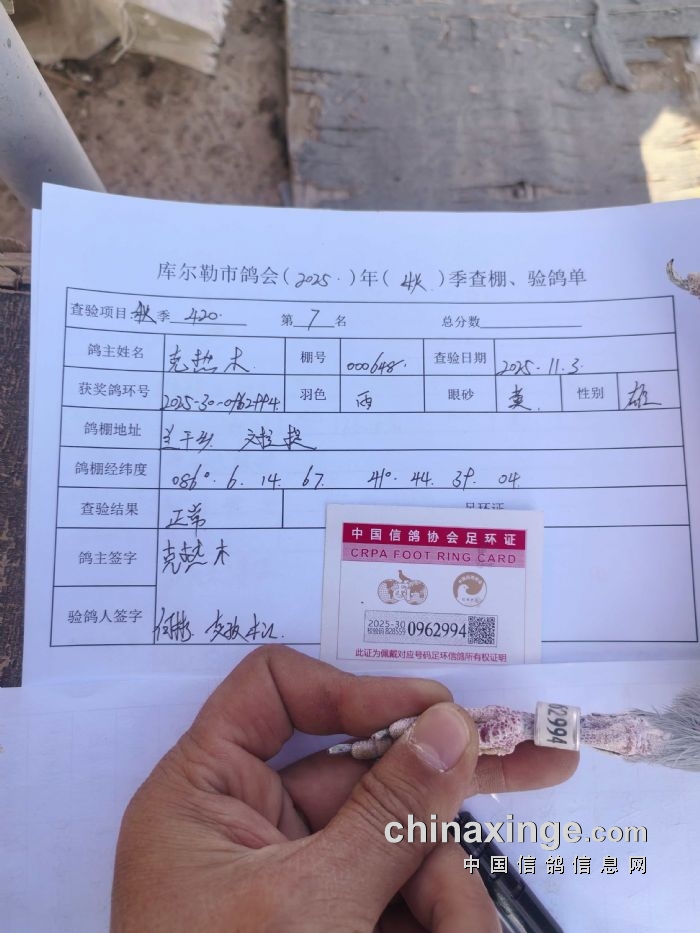 库尔勒市鸽会(2025.)年(秋)季查棚、验鸽单
查验项目 秋 季 420. 第 7 名 总分数
鸽主姓名 克热木. 棚号 000648. 查验日期 2025.11.3.
获奖鸽环号 2025-30-0962994. 羽色 雨 眼砂 黄. 性别 雄
鸽棚地址 兰干乡.
鸽棚经纬度 086°. 6. 14. 67. 41°. 44. 39. 04.
查验结果 正常 足环证
鸽主签字 克热木
验鸽人签字
中国信鸽协会足环证
CRPA FOOT RING CARD
2025-30 0962994
校验码 B28559
此证为佩戴对应号码足环信鸽所有权证明
62994
chinaxinge.com
中国信鸽信息网